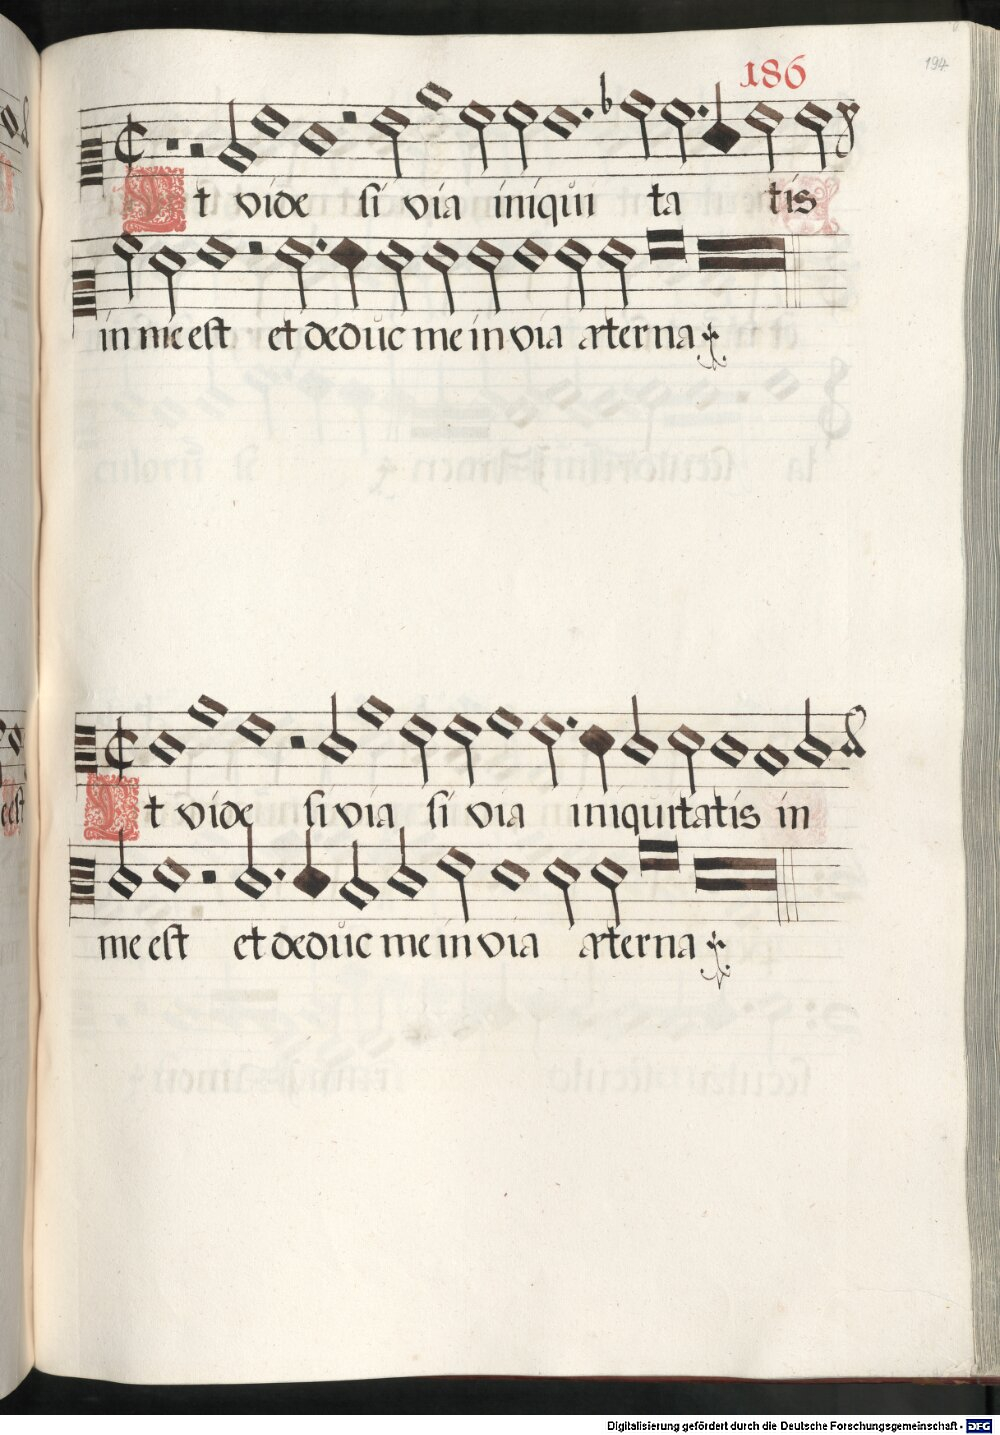 186
194
Et vide si via iniqui ta tis
in me est et deduc me in via æterna
Et vide si via si via iniquitatis in
me est et deduc me in via æterna
Digitalisierung gefördert durch die Deutsche Forschungsgemeinschaft - DFG